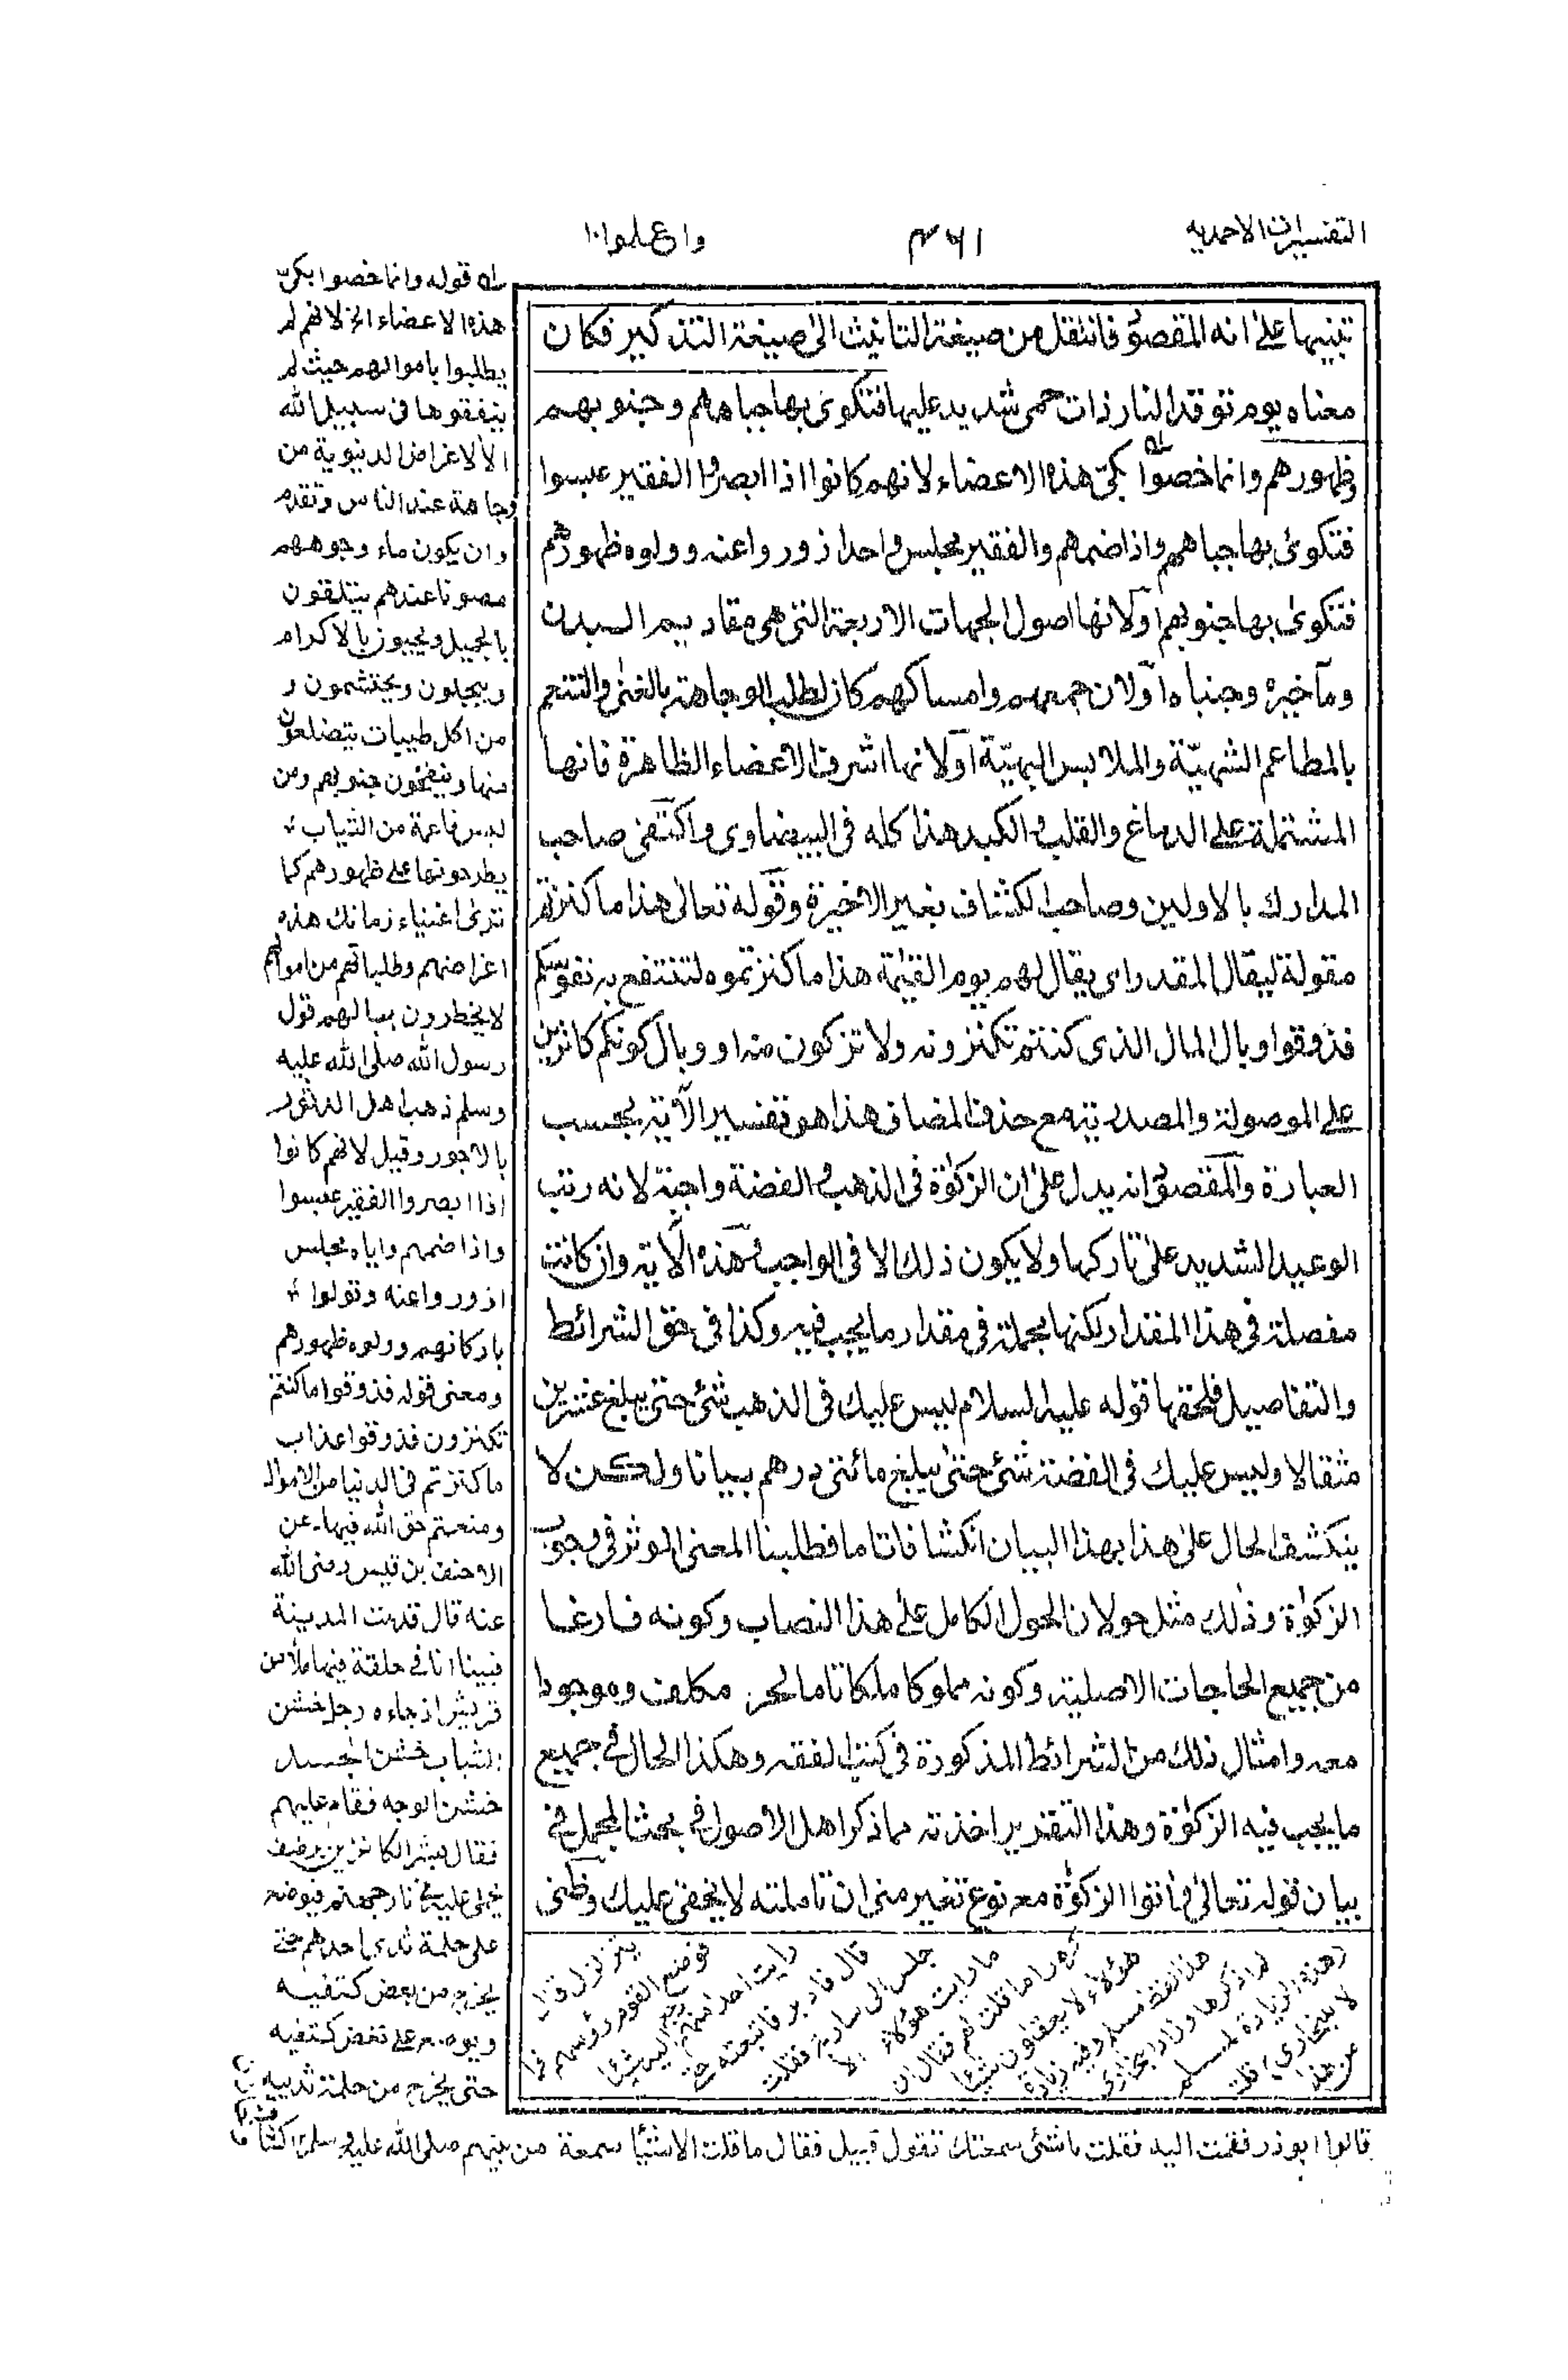 التفسيرات الاحمدیه
۴۶۱
واعلموا۱۰
تنبيها على انه المقصود فانتقل من صيغة التانيث الى صيغة التذكير فكان
معناه يوم توقد النار ذات حمى شديد عليها فتكوى بها جباههم وجنوبهم
وظهورهم وانما خصوا بكىّ هذه الاعضاء لانهم كانوا اذا ابصروا الفقير عبسوا
فتكوى بها جباههم واذا ضمهم والفقير مجلس واحد ازوروا عنه وولوه ظهورهم
فتكوى بها جنوبهم اَولانها اصول الجهات الاربعة التى هى مقاديم البدن
ومآخيره وجنباه اَولان جمعهم وامساكهم كان لطلب الوجاهة بالغنى والتنعم
بالمطاعم الشهيّة والملابس البهيّة اَولانها اشرف الاعضاء الظاهرة فانها
المشتملة على الدماغ والقلب والكبد هذا كله فى البيضاوى واكتفى صاحب
المدارك بالاولين وصاحب الكشاف بغير الاخيرة وقوله تعالى هذا ما كنزتم
مقولة ليقال المقدر اى يقال لهم يوم القيٰمة هذا ما كنزتموه لتنتفع به نفوسكم
فذوقوا وبال المال الذى كنتم تكنزونه ولا تزكون منه او وبال كونكم كانزين
على الموصولة والمصدرية مع حذف المضاف هذا هو تفسير الآية بحسب
العبارة والمقصود انه يدل على ان الزكوٰة فى الذهب والفضة واجبة لانه رتب
الوعيد الشديد على تاركها ولا يكون ذلك الا فى الواجب وهذه الآية وان كانت
مفصلة فى هذا المقدار لكنها مجملة فى مقدار ما يجب فيه وكذا فى حق الشرائط
والتفاصيل فلحقها قوله عليه السلام ليس عليك فى الذهب شئ حتى يبلغ عشرين
مثقالا وليس عليك فى الفضة شئ حتى يبلغ مائتى درهم بيانا ولكن لا
ينكشف الحال على هذا بهذا البيان انكشافا تاما فطلبنا المعنى الموثر فى وجوب
الزكوٰة وذلك مثل حولان الحول الكامل على هذا النصاب وكونه فارغا
من جميع الحاجات الاصلية وكونه مملوكا ملكا تاما لحر مكلف وموجودا
معه وامثال ذلك من الشرائط المذكورة فى كتب الفقه وهكذا الحال فى جميع
ما يجب فيه الزكوٰة وهذا التقرير اخذته مما ذكر اهل الاصول فى بحث المجمل فى
بيان قوله تعالى وآتوا الزكوٰة مع نوع تغير منى ان تاملته لا يخفى عليك وظنى
له قوله وانما خصوا بكىّ
هذه الاعضاء الخ لانهم لم
يطلبوا باموالهم حيث لم
ينفقوها فى سبيل الله
الا الاغراض الدنيوية من
وجاهة عند الناس وتقدم
وان يكون ماء وجوههم
مصونا عندهم يتلقون
بالجميل ويحيون بالاكرام
ويبجلون ويحتشمون و
من اكل طيبات يتضلعون
منها وينفخون جنوبهم ومن
لبس ناعمة من الثياب
يطرحونها على ظهورهم كما
ترى اغنياء زمانك هذه
اغراضهم وطلباتهم من اموالهم
لا يخطرون ببالهم قول
رسول الله صلى الله عليه
وسلم ذهب اهل الدثور
بالاجور وقيل لانهم كانوا
اذا ابصروا الفقير عبسوا
واذا ضمهم واياه مجلس
ازوروا عنه وتولوا
باركانهم وولوه ظهورهم
ومعنى قوله فذوقوا ما كنتم
تكنزون فذوقوا عذاب
ما كنزتم فى الدنيا من الاموال
ومنعتم حق الله فيها۔ عن
الاحنف بن قيس رضى الله
عنه قال قدمت المدينة
فبينا انا فى حلقة فيها ملأ من
قريش اذ جاءه رجل خشن
الثياب خشن الجسد
خشن الوجه فقام عليهم
فقال بشر الكانزين برضف
يحمى عليه فى نار جهنم فيوضع
على حلمة ثدى احدهم حتى
يخرج من بعض كتفيه
ويوضع على نغض كتفيه
حتى يخرج من حلمة ثدييه
يتزلزل قال
فوضع القوم رؤسهم فما
رايت احدا منهم رجع اليه شيئا
قال فادبر فاتبعته حتى
جلس الى سارية فقلت
ما رايت هؤلاء الا
كرهوا ما قلت لهم فقال ان
هؤلاء لا يعقلون شيئا
هذا لفظ مسلم وفيه زيادة
لم اذكرها وزاد البخارى
وهذه الزيادة لمسلم
لا للبخارى، قلت
من هذا
قالوا ابوذر فقمت اليه فقلت ما شئ سمعتك تقول قبيل فقال ما قلت الا شيئا سمعته من نبيهم صلى الله عليه وسلم